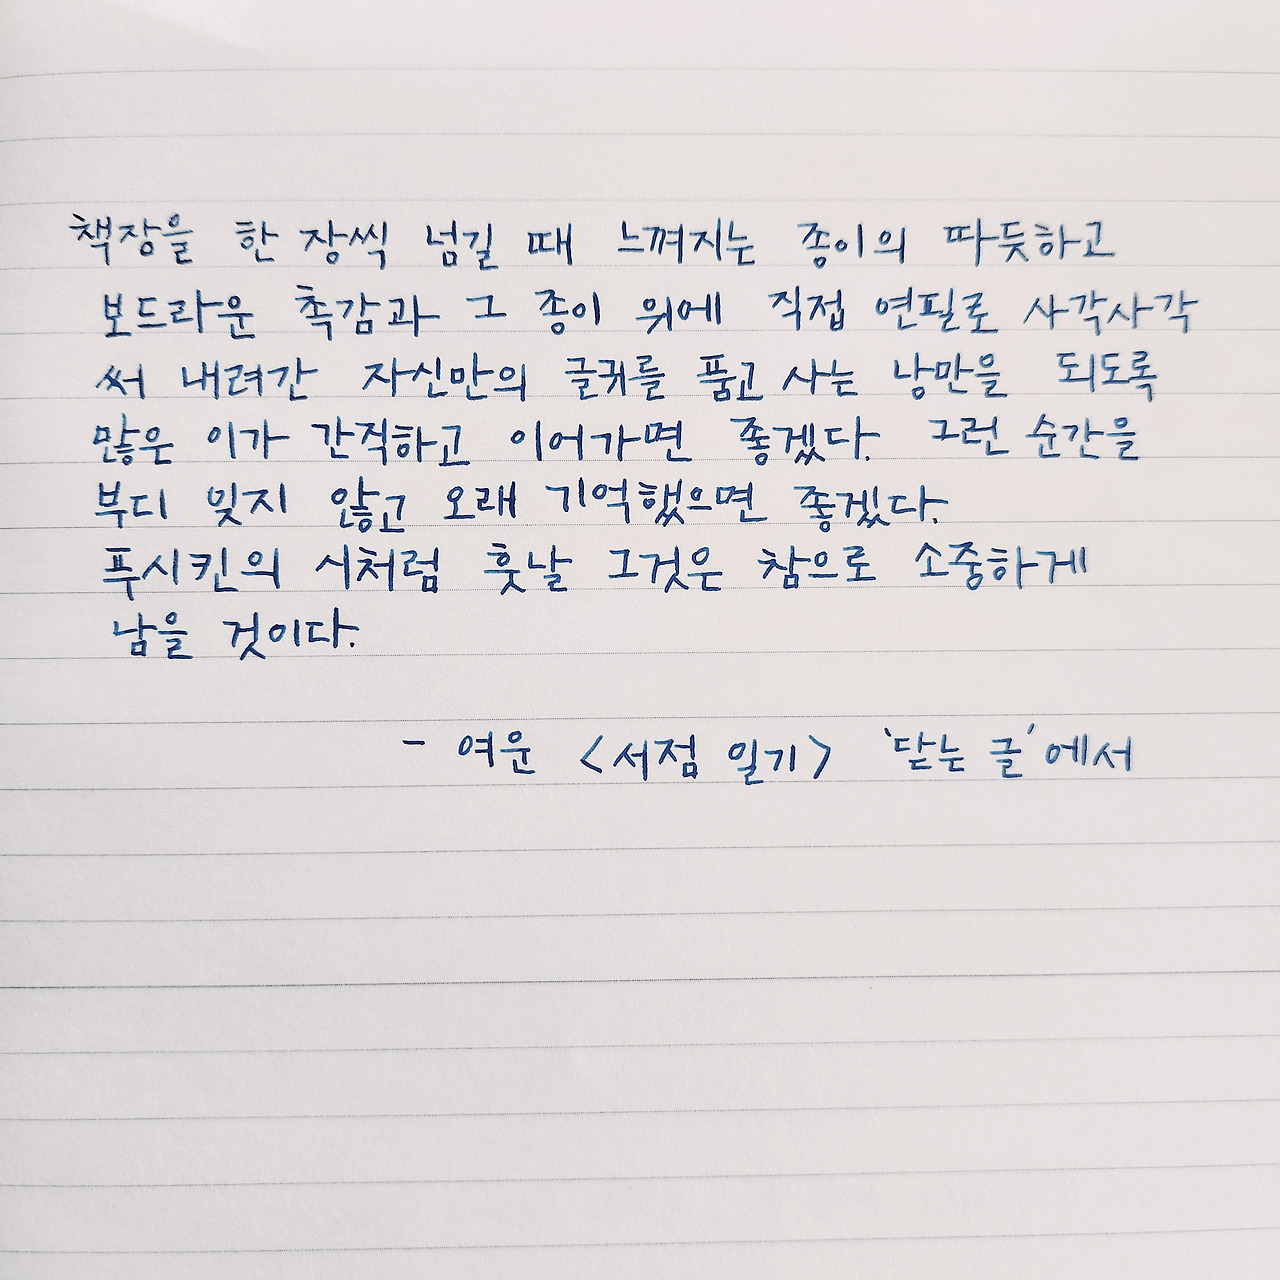 책장을 한 장씩 넘길 때 느껴지는 종이의 따듯하고
보드라운 촉감과 그 종이 위에 직접 연필로 사각사각
써 내려간 자신만의 글귀를 품고 사는 낭만을 되도록
많은 이가 간직하고 이어가면 좋겠다. 그런 순간을
부디 잊지 않고 오래 기억했으면 좋겠다.
푸시킨의 시처럼 훗날 그것은 참으로 소중하게
남을 것이다.
- 여운 <서점 일기> '닫는 글'에서